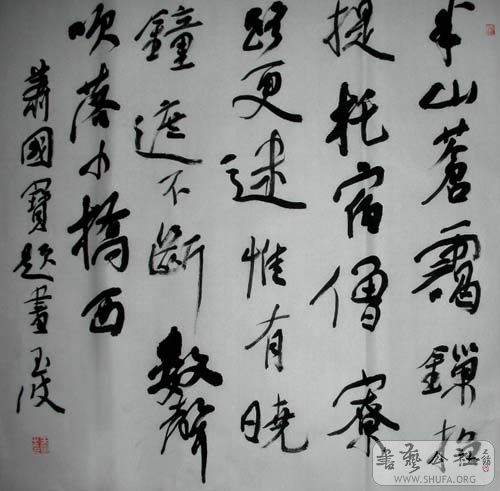 半山蒼靄鏁招
提托宿僧寮
路更迷惟有曉
鐘遮不斷數聲
吹落小橋西
蕭國寶題畫 玉波
書藝公社
WWW.SHUFA.ORG